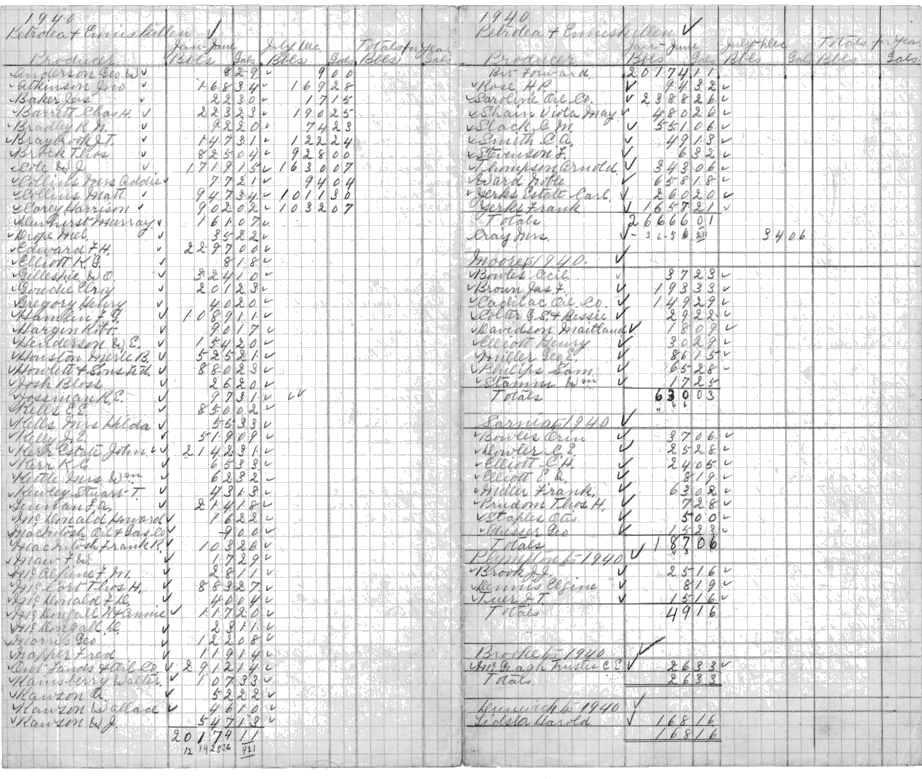 1940
Petrolea & Enniskillen ✓
Jan-June July-Dec Totals for Year
Producer Bbls Gals Bbls Gals Bbls Gals
Anderson Geo W 829 900
Atkinson Jno 16834 16928
Baker Jas 2230 1715
Barrett Chas H. 22323 19025
Bradley R. N. 9220 7423
Braybrook J.T. 14731 12224
Brock Thos 82504 92800
Cole W J. 171915 163007
Collins Mrs Addie 7721 9404
Collins Matt 94734 101130
Corey Harrison 90202 103207
Dewhirst Murray 16407
Drope Mel 3522
Edward F.H. 229700
Elliott K.G. 818
Gillespie W.O. 32410
Goudie Elroy 20123
Gregory Henry 4020
Hamlin F.G. 108911
Hargin Robt 9017
Henderson W.E. 15420
Houston Merle B. 52521
Howlett & Sons Ltd. 88023
Josh Bloss 2620
Jossman R.E. 9731
Kells C.E. 85002
Kells Mrs Hilda 5533
Kelly J.E. 51909
Kerr Estate John 214231
Kerr K.G. 6533
Kettle Mrs Wm 6232
Kewley Stuart T. 4313
Lenman L.A. 21418
McDonald Howard 1622
Macintosh Oil & Gas Co 900
MacKintosh Frank R. 10326
Maw F.W. 1729
McAlpine F.M. 2811
McCort Thos H. 88327
McDonald F.D. 4604
McDougall N & Annie 11720
McDougall D. 2311
Morris Geo 12208
Napper Fred 11914
Ont Lands & Oil Co 291214
Ramsberry Walter 10733
Rawson A 5222
Rawson Wallace 4610
Rawson W.J. 54713
2017411
1940
Petrolea & Enniskillen ✓
Jan-June July-Dec Totals for Year
Producer Bbls Gals Bbls Gals Bbls Gals
Brt Forward 2017411
Rose H.P. 9432
Saroline Oil Co. 238826
Shain Viola May 48026
Slack C.M. 55106
Smith C.A. 4913
Stevenson F. 632
Thompson Arnold 34306
Ward Notes 65818
Yerks Estate Carl. 26020
Yerks Frank 165721
Totals 2666601
Craig Mrs. 3406
Moore 1940.
Bowles Cecil 3723
Brown Jas F. 19333
Cadillac Oil Co. 14929
Colter G.S. & Bessie 2922
Davidson Maitland 1809
Elliott Henry 3029
Miller Geo E. 8615
Philips Sam 6528
Stamm Wm 1725
Totals 63003
Sarnia 1940
Bowles Orin 3706
Dowler C.E. 2528
Elliott C.H. 2405
Elliott E.R. 819
Miller Frank. 6302
Prudom Thos H. 728
Staples Otis 500
Totals 18706
Plympton 1940
Brook J.J. 2516
Dennis Elgine 819
Totals 4916
Brooke 1940
McGragh Trustee C.E. 2633
Totals 2633
Dunwich 1940
Lidsta Harold 16816
16816